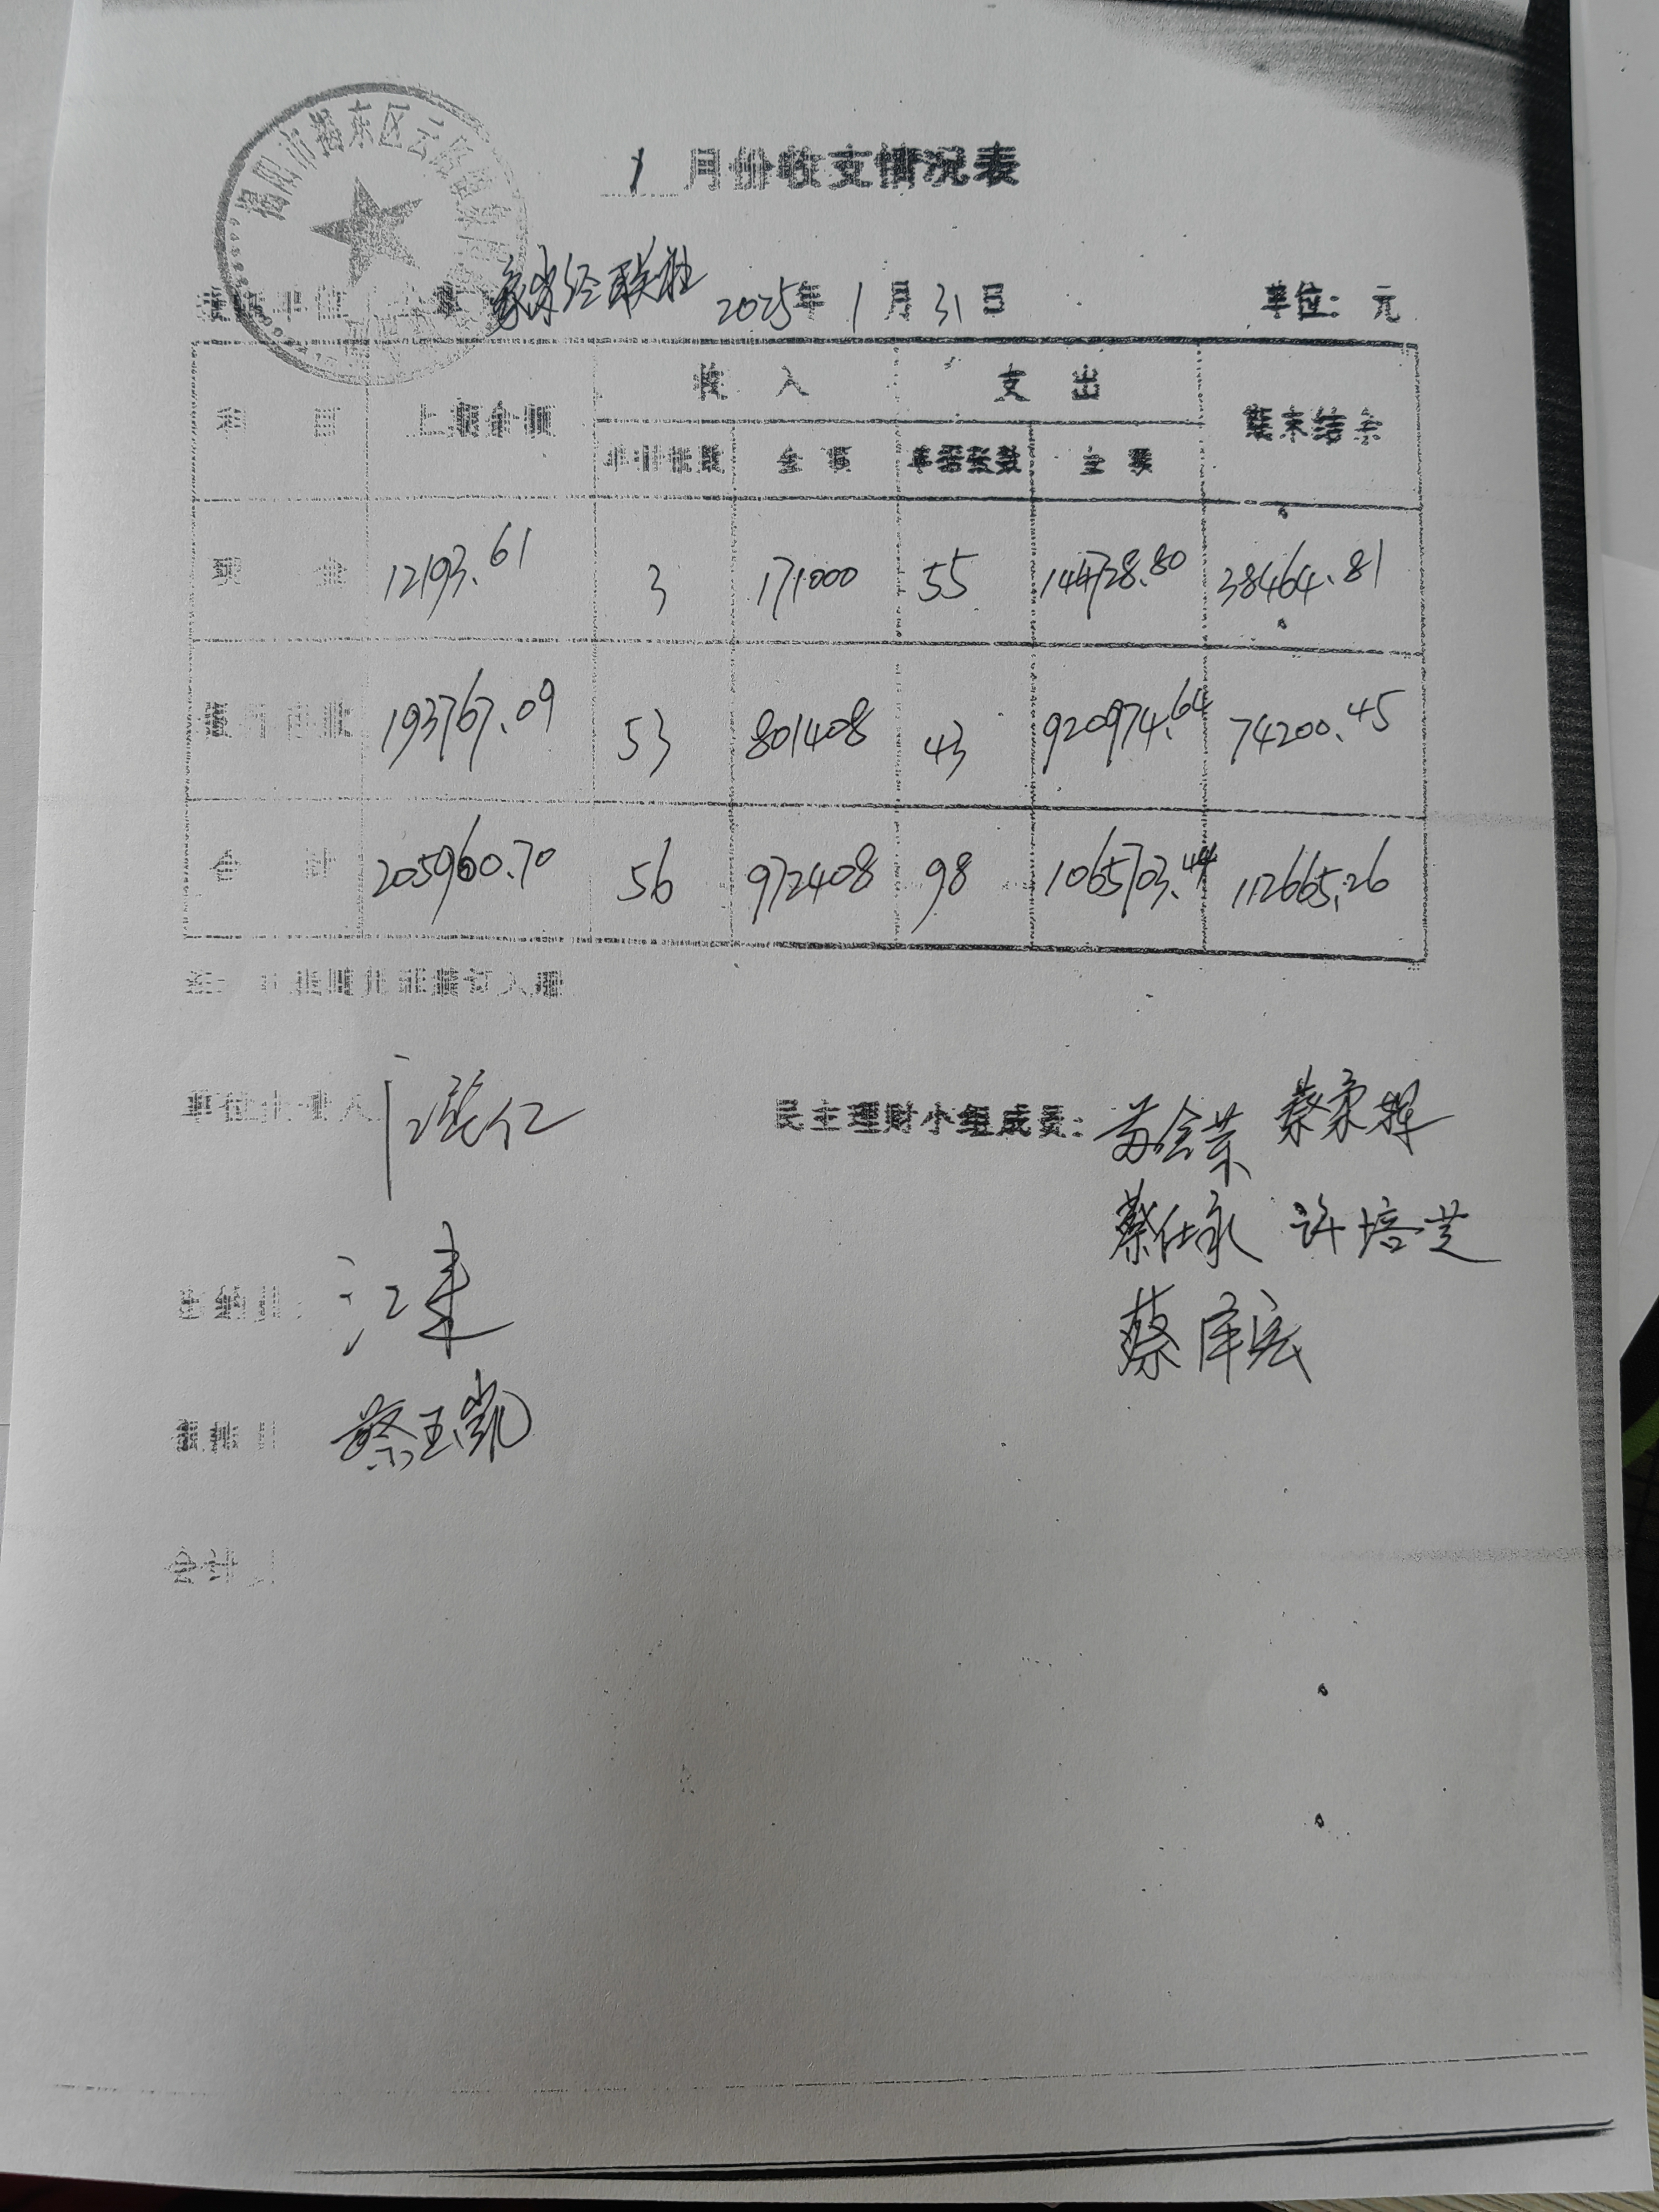 揭阳市揭东区云路镇
1 月份收支情况表
经联社 2025年 1 月 31 日 单位: 元
项 目 上期余额 收 入 支 出 期末结余
单据张数 金 额 单据张数 金 额
现 金 12193.61 3 171000 55 144728.80 38464.81
银行存款 193767.09 53 801408 43 920974.64 74200.45
合 计 205960.70 56 972408 98 1065703.44 112665.26
单位负责人 民主理财小组成员: 蔡
蔡仕永 许培芝
出纳员: 江
蔡泽宏
蔡玉凯
会计员